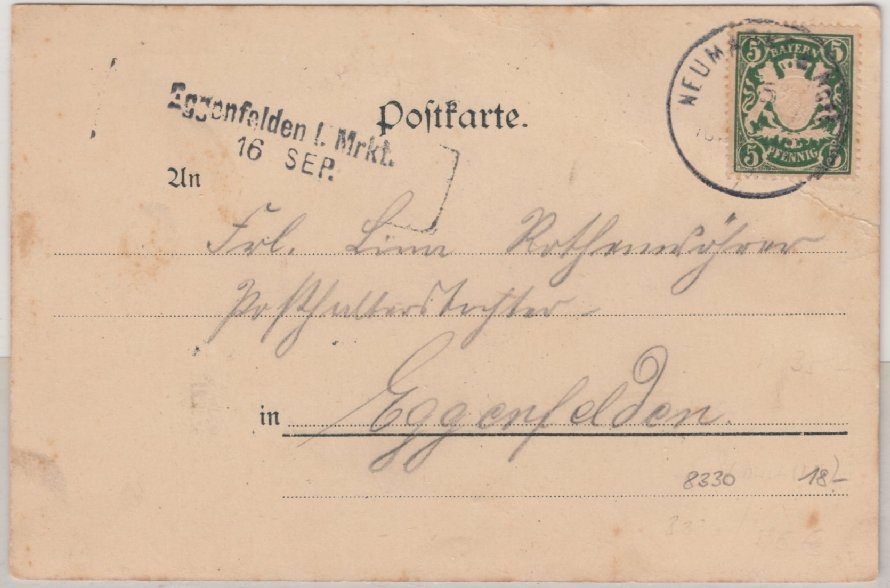 Postkarte.
Eggenfelden I. Mrkt.
16 SEP.
5 BAYERN 5
5 PFENNIG 5
NEUMA
An
Frl. Lina Rothenwöhrer
Posthalterstochter
in Eggenfelden.
8330 18.-